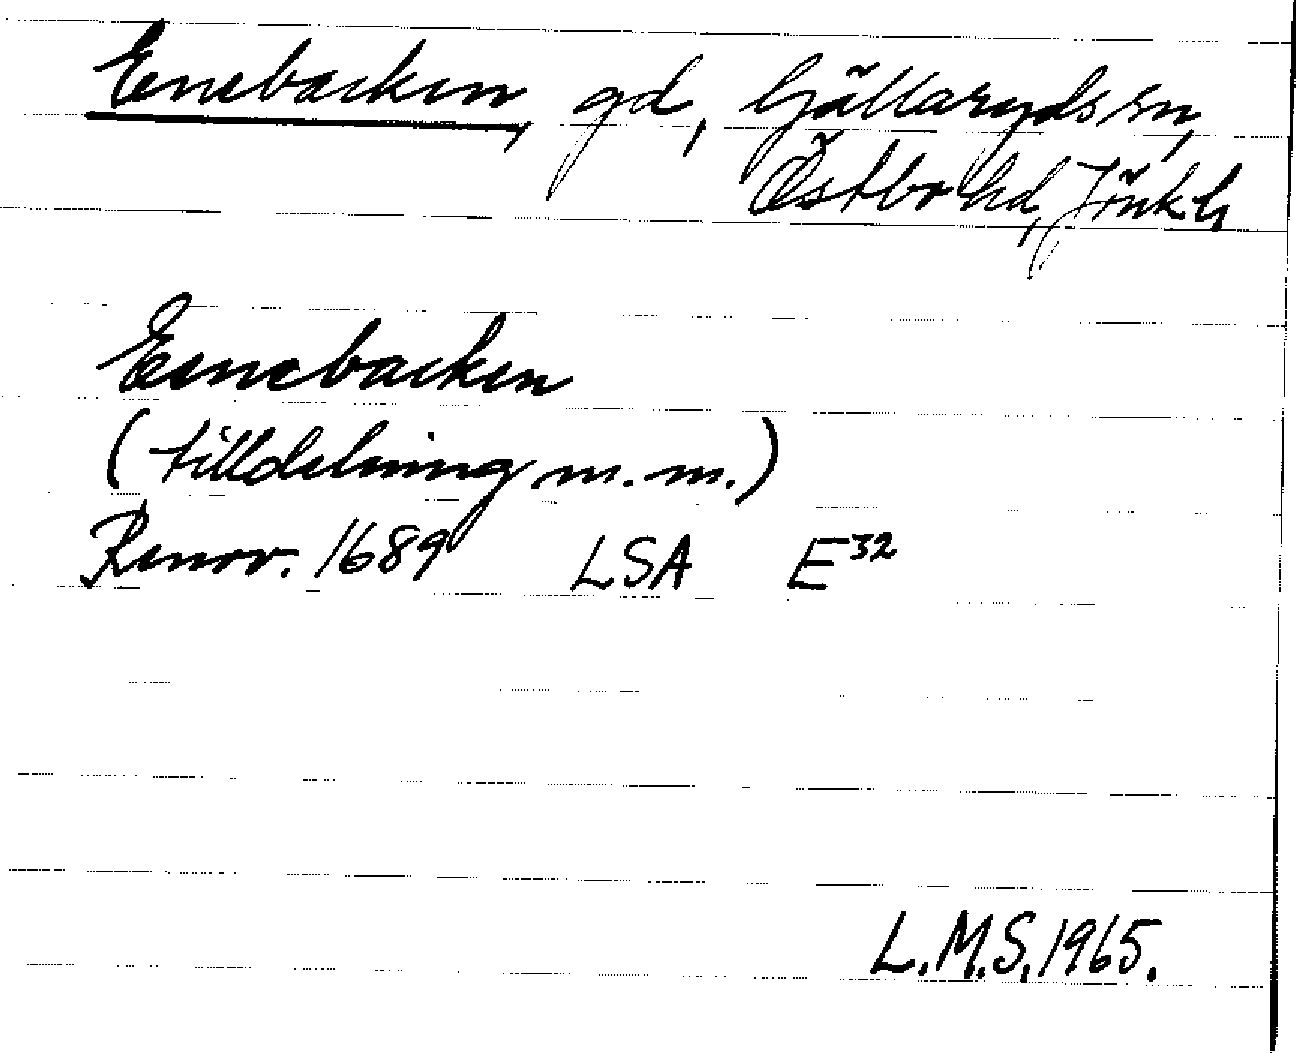 Enebacken, gd, Gällaryds sn,
Östbo hd, Jönk. l.
Eenebacken
(tilldelning m.m.)
Renov. 1689 LSA E32
L.M.S. 1965.